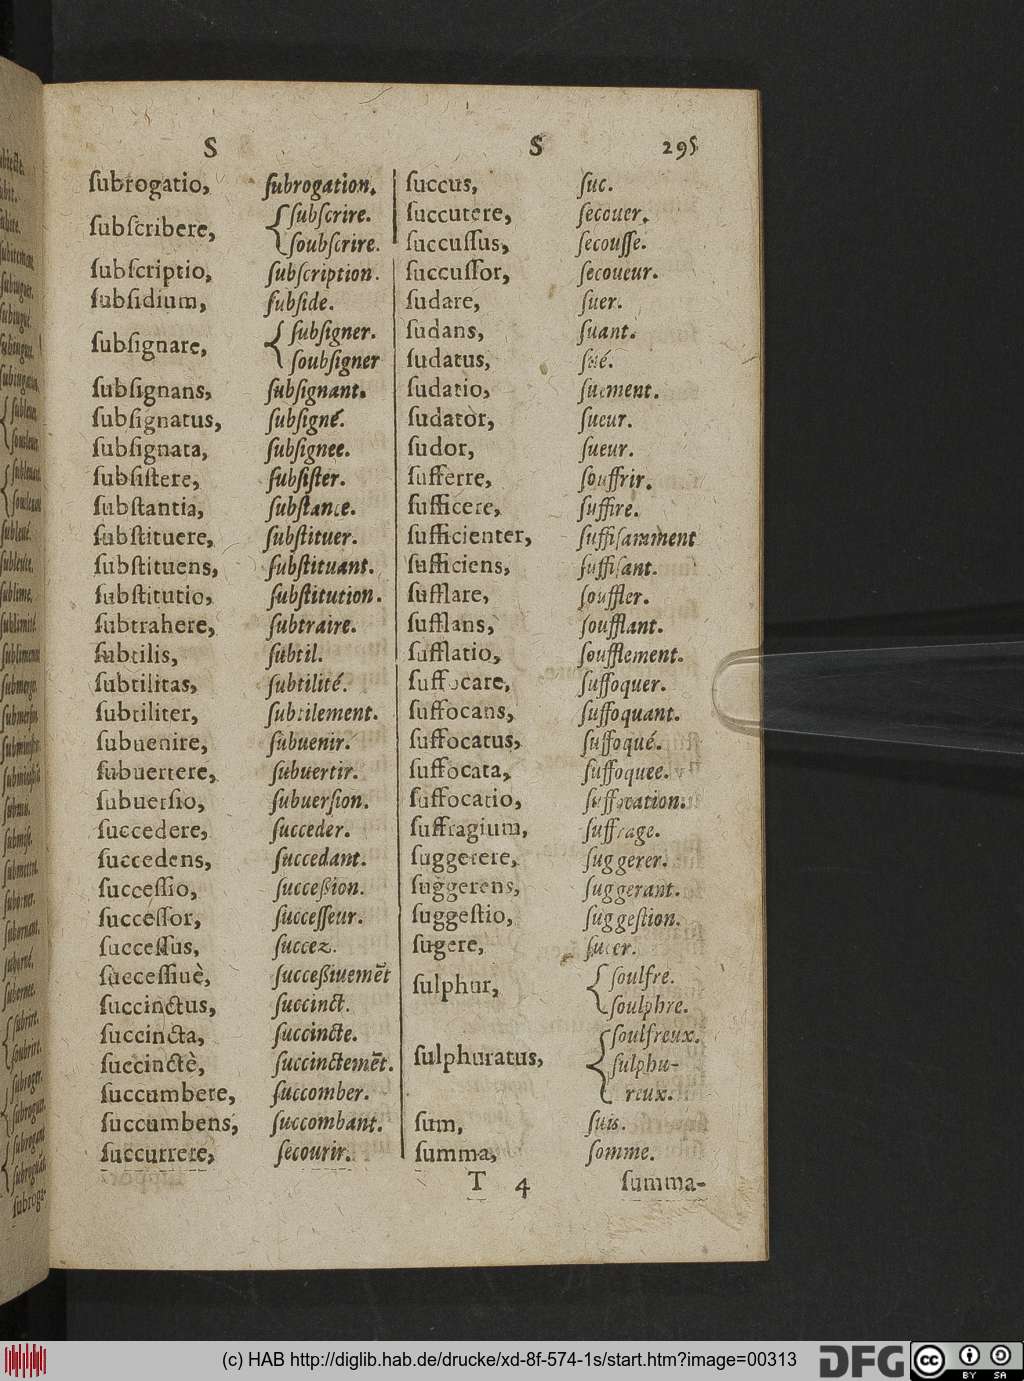 S S 295
ſubrogatio, ſubrogation.
ſubſcribere, ſubſcrire.
ſoubſcrire.
ſubſcriptio, ſubſcription.
ſubſidium, ſubſide.
ſubſignare, ſubſigner.
ſoubſigner
ſubſignans, ſubſignant.
ſubſignatus, ſubſigné.
ſubſignata, ſubſignee.
ſubſiſtere, ſubſiſter.
ſubſtantia, ſubſtance.
ſubſtituere, ſubſtituer.
ſubſtituens, ſubſtituant.
ſubſtitutio, ſubſtitution.
ſubtrahere, ſubtraire.
ſubtilis, ſubtil.
ſubtilitas, ſubtilité.
ſubtiliter, ſubtilement.
ſubuenire, ſubuenir.
ſubuertere, ſubuertir.
ſubuerſio, ſubuerſion.
ſuccedere, ſucceder.
ſuccedens, ſuccedant.
ſucceſſio, ſucceßion.
ſucceſſor, ſucceſſeur.
ſucceſſus, ſuccez.
ſucceſſiuè, ſucceßiuemẽt
ſuccinctus, ſuccinct.
ſuccincta, ſuccincte.
ſuccinctè, ſuccinctemẽt.
ſuccumbere, ſuccomber.
ſuccumbens, ſuccombant.
ſuccurrere, ſecourir.
ſuccus, ſuc.
ſuccutere, ſecouer.
ſuccuſſus, ſecouſſe.
ſuccuſſor, ſecoueur.
ſudare, ſuer.
ſudans, ſuant.
ſudatus, ſué.
ſudatio, ſuement.
ſudator, ſueur.
ſudor, ſueur.
ſufferre, ſouffrir.
ſufficere, ſuffire.
ſufficienter, ſuffiſamment
ſufficiens, ſuffiſant.
ſufflare, ſouffler.
ſufflans, ſoufflant.
ſufflatio, ſoufflement.
ſuffocare, ſuffoquer.
ſuffocans, ſuffoquant.
ſuffocatus, ſuffoqué.
ſuffocata, ſuffoquee.
ſuffocatio, ſuffocation.
ſuffragium, ſuffrage.
ſuggerere, ſuggerer.
ſuggerens, ſuggerant.
ſuggeſtio, ſuggeſtion.
ſugere, ſucer.
ſulphur, ſoulfre.
ſoulphre.
ſulphuratus, ſoulfreux.
ſulphu-
reux.
ſum, ſuis.
ſumma, ſomme.
T 4 ſumma-
(c) HAB http://diglib.hab.de/drucke/xd-8f-574-1s/start.htm?image=00313
DFG
cc BY SA